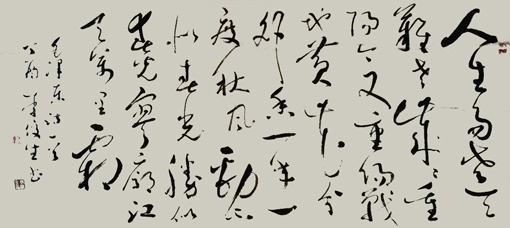 人生易老天
難老歲歲重
陽今又重陽戰
地黄花分
外香一年一
度秋風勁不
似春光勝似
春光寥廓江
天萬里霜
毛澤東一首
生書